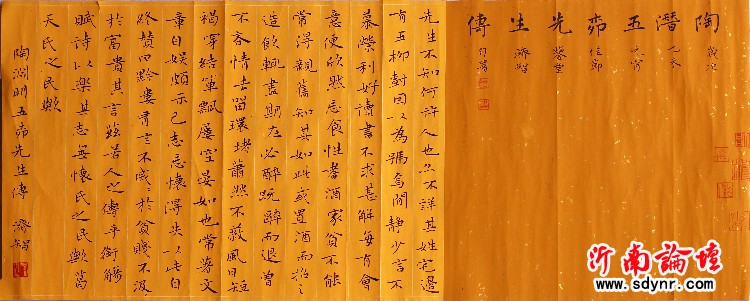 陶潛五柳先生傳
先生不知何許人也亦不詳其姓宅邊
有五柳樹因以為號焉閒靜少言不
慕榮利好讀書不求甚解每有會
意便欣然忘食性嗜酒家貧不能
常得親舊知其如此或置酒而招之
造飲輒盡期在必醉既醉而退曾
不吝情去留環堵蕭然不蔽風日短
褐穿結簞瓢屢空晏如也常著文
章自娛頗示己志忘懷得失以此自
終贊曰黔婁有言不戚〻於貧賤不汲〻
於富貴其言茲若人之儔乎銜觴
賦詩以樂其志無懷氏之民歟葛
天氏之民歟
陶淵明五柳先生傳 濟智
沂南論壇
www.sdynr.com